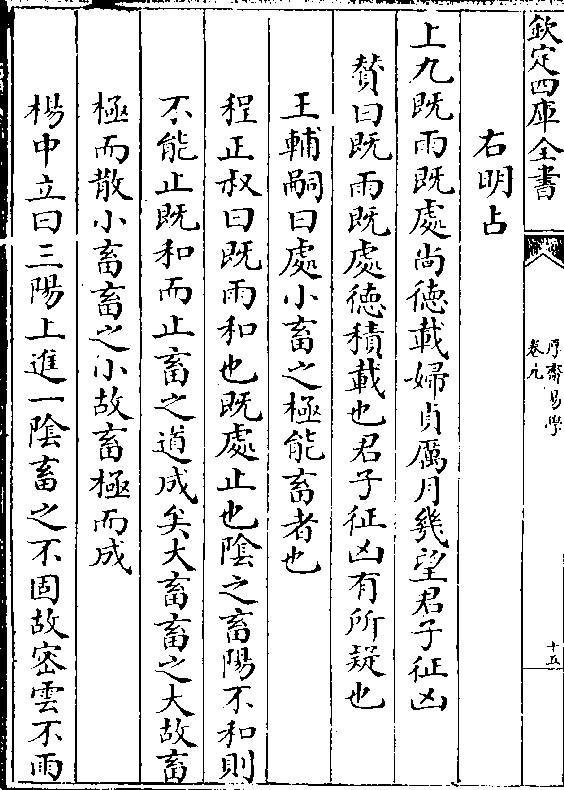 欽定四庫全書
厚齋易學
卷九
十五
右明占
上九既雨既處尚徳載婦貞厲月幾望君子征凶
賛曰既雨既處徳積載也君子征凶有所疑也
王輔嗣曰處小畜之極能畜者也
程正叔曰既雨和也既處止也陰之畜陽不和則
不能止既和而止畜之道成矣大畜畜之大故畜
極而散小畜畜之小故畜極而成
楊中立曰三陽上進一陰畜之不固故密雲不雨